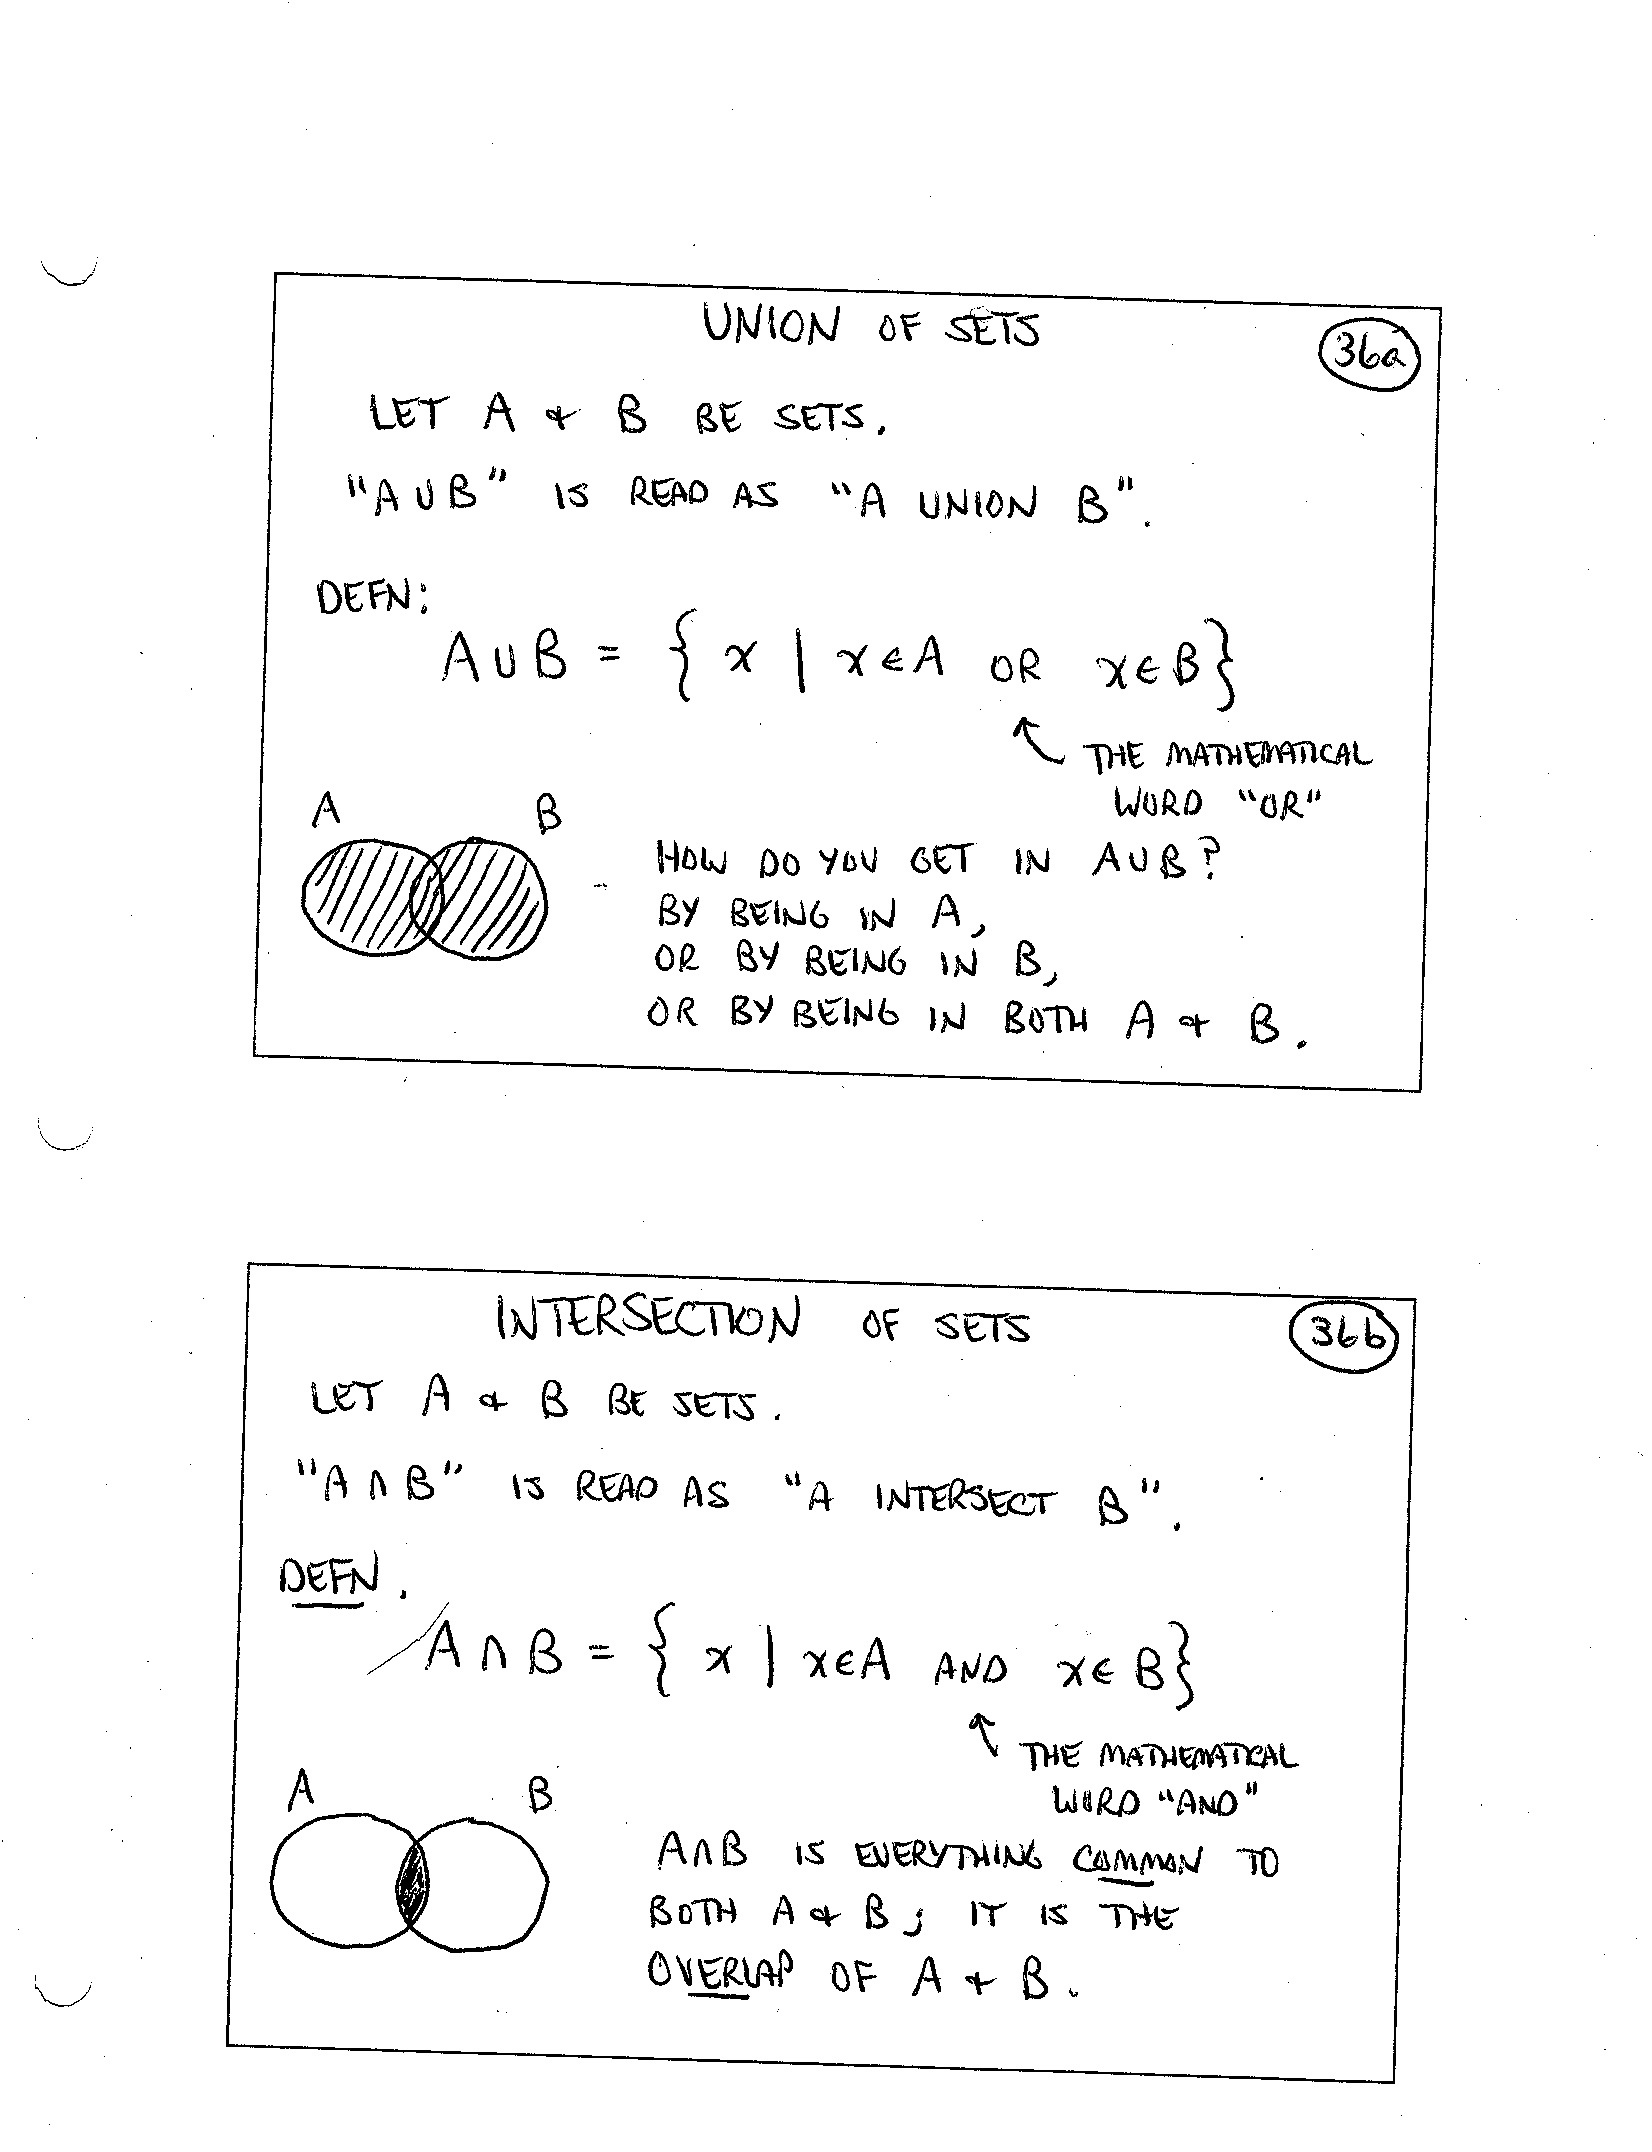 UNION OF SETS
36a
LET A & B BE SETS.
"A ∪ B" IS READ AS "A UNION B".
DEFN:
A ∪ B = { x | x ∈ A OR x ∈ B }
THE MATHEMATICAL
WORD "OR"
A B
HOW DO YOU GET IN A ∪ B?
BY BEING IN A,
OR BY BEING IN B,
OR BY BEING IN BOTH A & B.
INTERSECTION OF SETS
36b
LET A & B BE SETS.
"A ∩ B" IS READ AS "A INTERSECT B".
DEFN.
A ∩ B = { x | x ∈ A AND x ∈ B }
THE MATHEMATICAL
WORD "AND"
A B
A ∩ B IS EVERYTHING COMMON TO
BOTH A & B; IT IS THE
OVERLAP OF A & B.